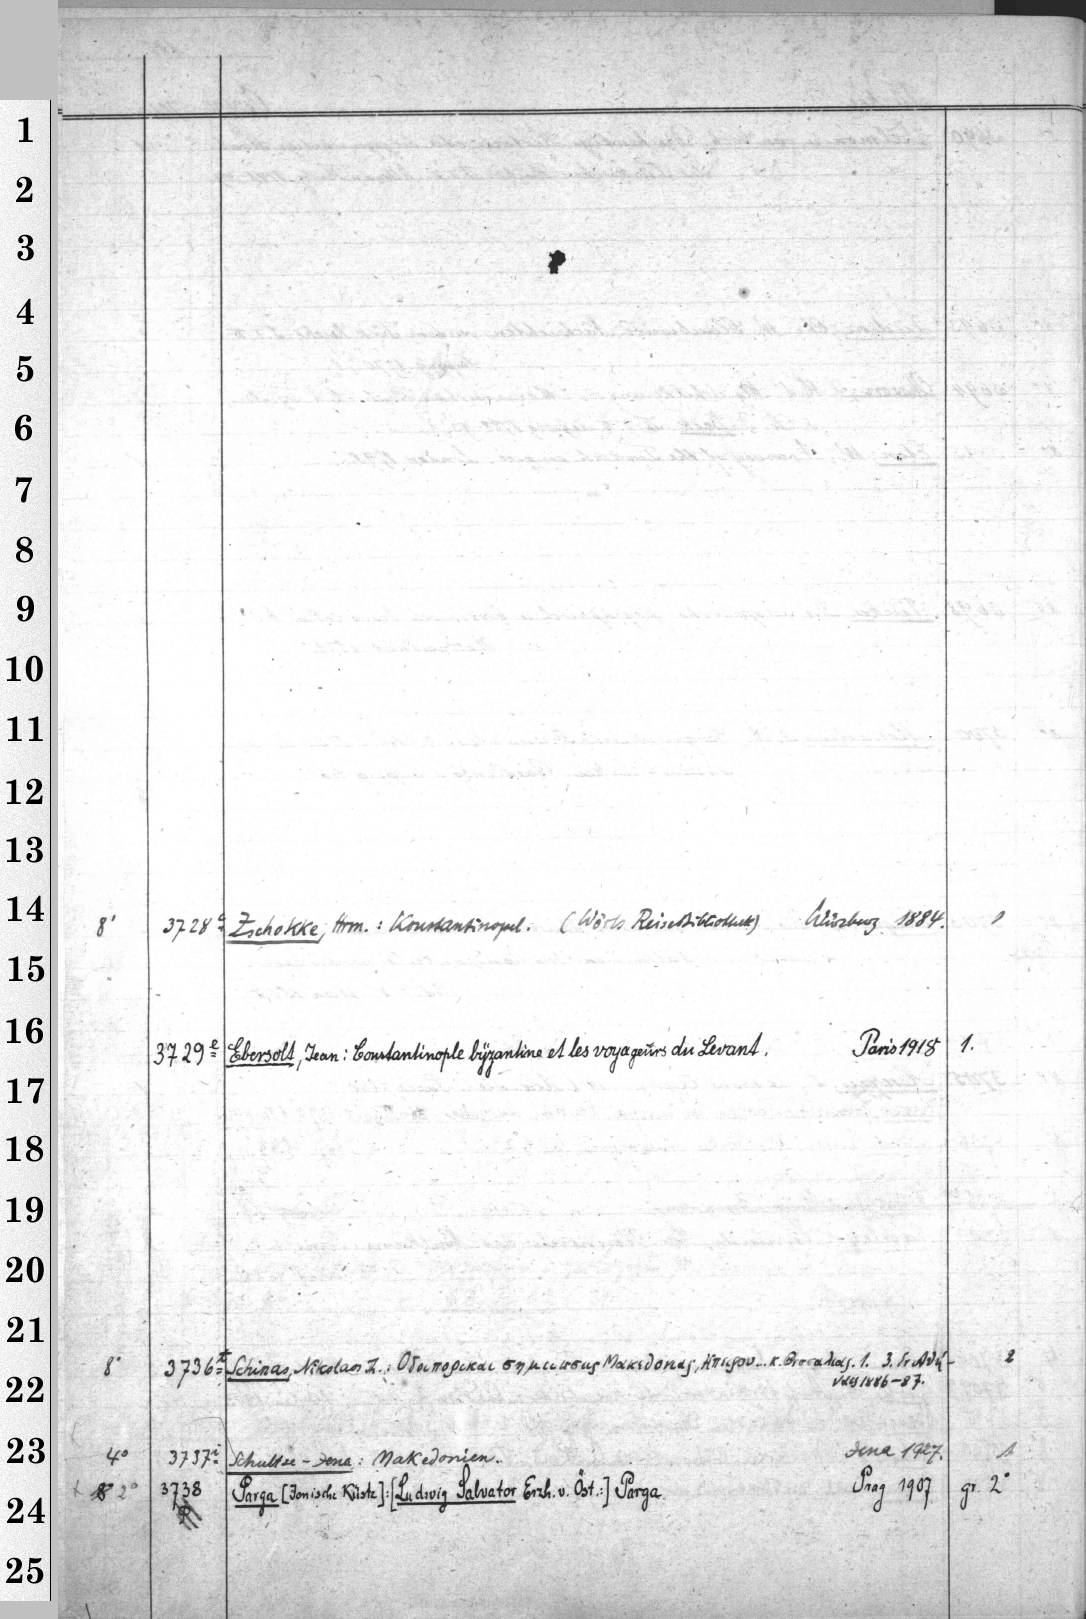 1
2
3
4
5
6
7
8
9
10
11
12
13
14
8° 3728 Zschokke, Hrm.: Konstantinopel. (Wörls Reisebibliothek) Würzburg 1884. 1
15
16
3729 e Ebersolt, Jean: Constantinople byzantine et les voyageurs du Levant. Paris 1918 1.
17
18
19
20
21
8° 3736 Schinas, Nikolaos Z.: Οδοιπορικαι σημειωσεις Μακεδονιας, Ηπειρου.. κ. Θεσσαλιας. 1. 3. Εν Αθή- 2
22 ναις 1886-87.
23
4° 3737 i Schultze-Jena: Makedonien. Jena 1927. 1
2° 3738 Parga [Jonische Küste]: [Ludwig Salvator Erzh. v. Öst.:] Parga Prag 1907 gr. 2°
24
25